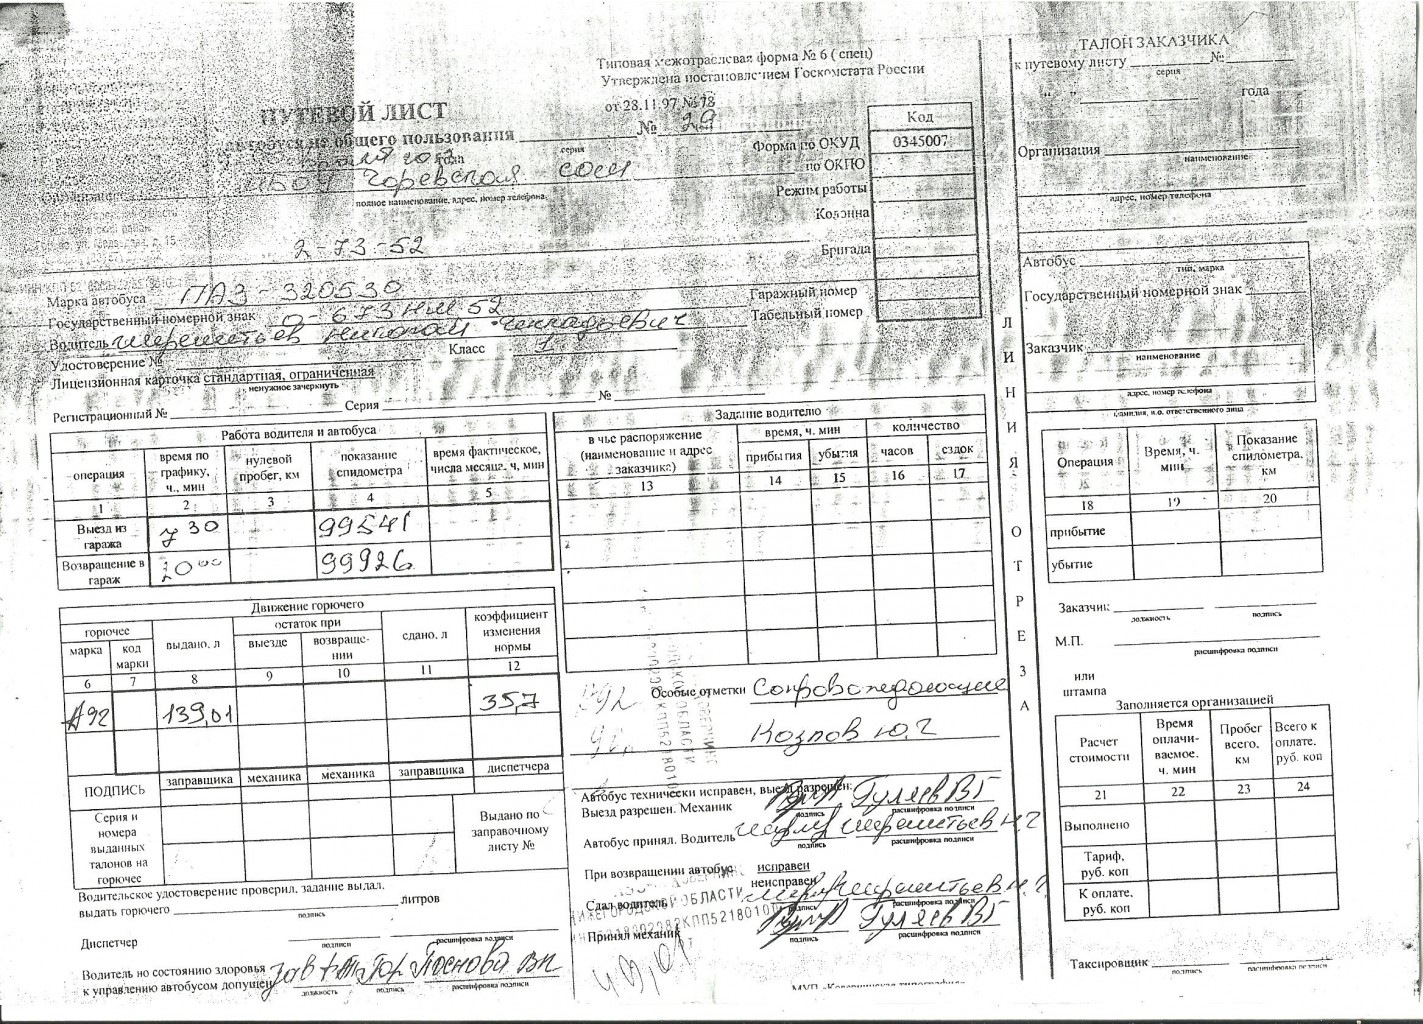 Типовая межотраслевая форма № 6 ( спец)
Утверждена постановлением Госкомстата России
от 28.11.97 № 78
ПУТЕВОЙ ЛИСТ
автобуса не общего пользования № 29
серия
года
СОШ
полное наименование, адрес, номер телефона.
2-73-52
Код
Форма по ОКУД 0345007
по ОКПО
Режим работы
Колонна
Бригада
Гаражный номер
Табельный номер
Марка автобуса ПАЗ-320530
Государственный номерной знак 0-673 НМ 52
Водитель
Удостоверение № Класс 1
Лицензионная карточка стандартная, ограниченная
ненужное зачеркнуть
Регистрационный № Серия №
Работа водителя и автобуса
операция
время по графику, ч., мин
нулевой пробег, км
показание спидометра
время фактическое, числа месяца, ч, мин
1 2 3 4 5
Выезд из гаража 7 30 99541
Возвращение в гараж 20 00 99926
Задание водителю
в чье распоряжение (наименование и адрес заказчика)
время, ч. мин
прибытия убытия
количество
часов ездок
13 14 15 16 17
Движение горючего
горючее
марка код марки
выдано, л
остаток при
выезде возвращении
сдано, л
коэффициент изменения нормы
6 7 8 9 10 11 12
А92 139,01 35,7
ПОДПИСЬ
заправщика механика механика заправщика диспетчера
Серия и номера выданных талонов на горючее
Выдано по заправочному листу №
Водительское удостоверение проверил, задание выдал.
выдать горючего литров
подпись
Диспетчер
подписи расшифровка подписи
Водитель по состоянию здоровья
к управлению автобусом допущен
должность подпись расшифровка подписи
Особые отметки Сопровождающие
Козлов Ю.Г
Автобус технически исправен, выезд разрешен:
Выезд разрешен. Механик Гуляев ВГ
подпись расшифровка подписи
Автобус принял. Водитель
подпись расшифровка подписи
При возвращении автобус исправен
неисправен
Сдал водитель
подпись расшифровка подписи
Принял механик Гуляев ВГ
подпись расшифровка подписи
ЛИНИЯ ОТРЕЗА
ТАЛОН ЗАКАЗЧИКА
к путевому листу №
серия
года
Организация
наименование
адрес, номер телефона
Автобус
тип, марка
Государственный номерной знак
Заказчик
наименование
адрес, номер телефона
фамилия, и.о. ответственного лица
Операция
Время, ч. мин
Показание спидометра, км
18 19 20
прибытие
убытие
Заказчик
должность подпись
М.П.
расшифровка подписи
или
штампа
Заполняется организацией
Расчет стоимости
Время оплачиваемое. ч. мин
Пробег всего, км
Всего к оплате. руб. коп
21 22 23 24
Выполнено
Тариф, руб. коп
К оплате, руб. коп
Таксировщик
подпись расшифровка подписи